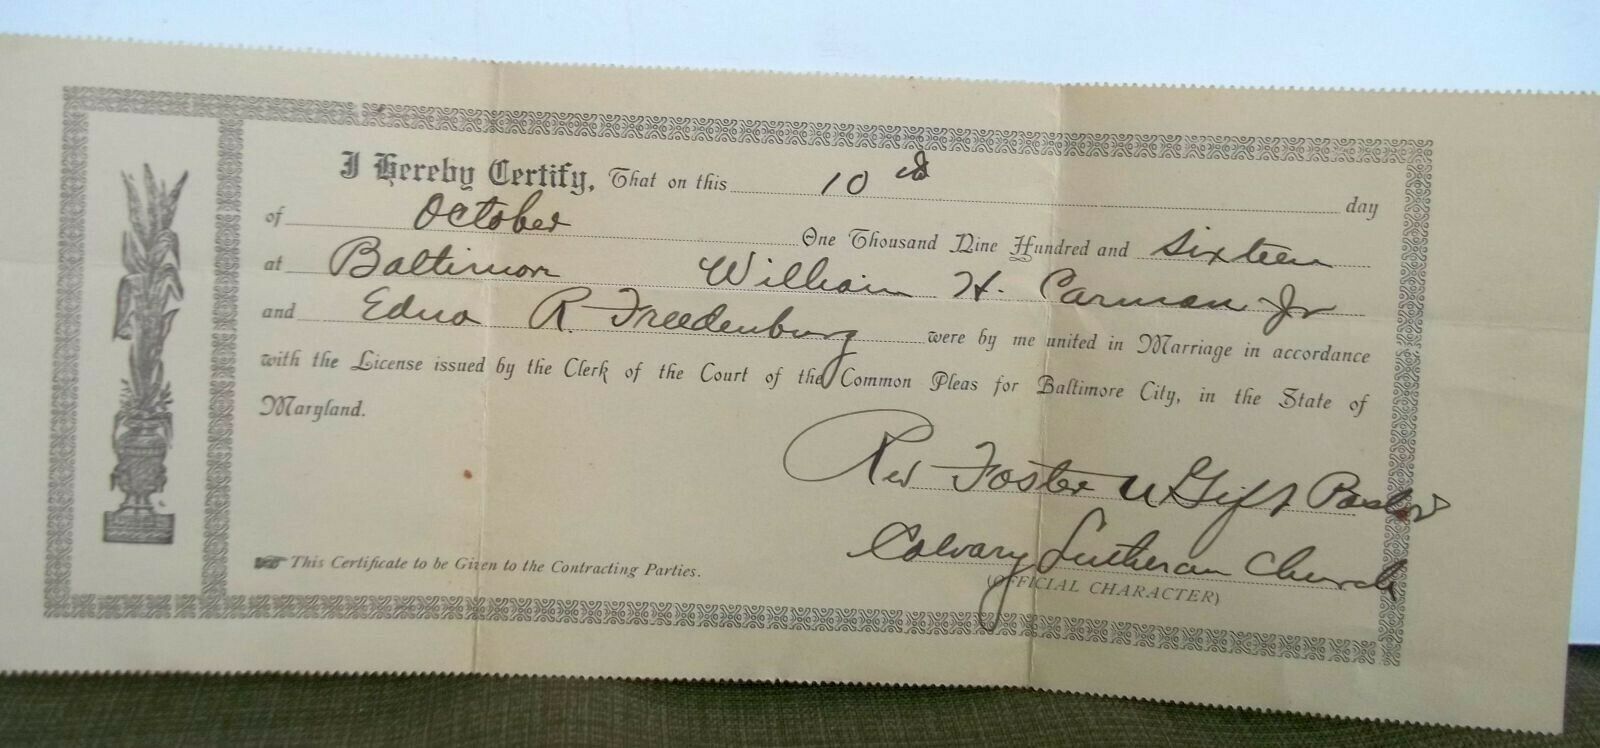 I Hereby Certify, That on this 10 day
of October One Thousand Nine Hundred and Sixteen
at Baltimore William H. Carman Jr
and Edna R. Freedenburg were by me united in Marriage in accordance
with the License issued by the Clerk of the Court of the Common Pleas for Baltimore City, in the State of
Maryland.
Rev Foster U Gift Pastor
Calvary Lutheran Church
This Certificate to be Given to the Contracting Parties.
(OFFICIAL CHARACTER)